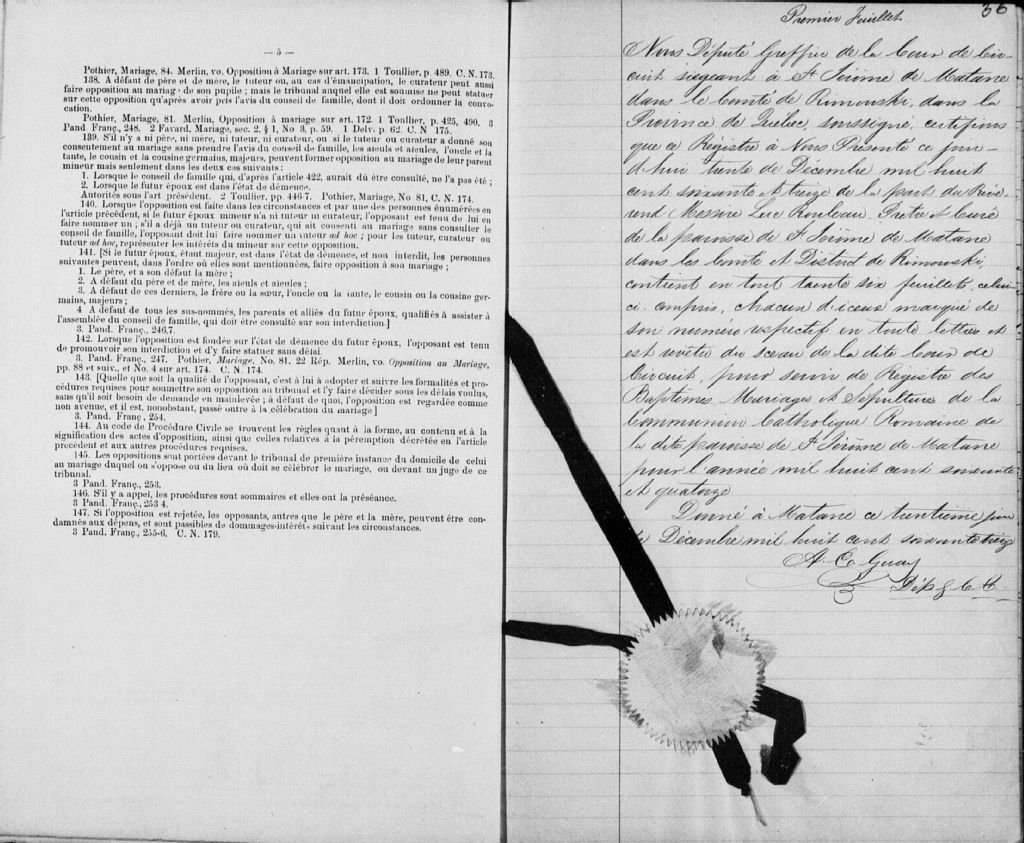 — 5 —
Pothier, Mariage, 84. Merlin, vo. Opposition à Mariage sur art. 173. 1 Toullier, p. 489. C. N. 173.
138. A défaut de père et de mère, le tuteur ou, au cas d'émancipation, le curateur peut aussi
faire opposition au mariage de son pupile ; mais le tribunal auquel elle est soumise ne peut statuer
sur cette opposition qu'après avoir pris l'avis du conseil de famille, dont il doit ordonner la convo-
cation.
Pothier, Mariage, 81. Merlin, Opposition à mariage sur art. 172. 1 Toullier, p. 425, 490. 3
Pand Franç., 248. 2 Favard, Mariage, sec. 2, § 1, No 3, p. 59. 1 Delv. p. 62. C. N 175.
139. S'il n'y a ni père, ni mère, ni tuteur, ni curateur, ou si le tuteur ou curateur a donné son
consentement au mariage sans prendre l'avis du conseil de famille, les aïeuls et aïeules, l'oncle et la
tante, le cousin et la cousine germains, majeurs, peuvent former opposition au mariage de leur parent
mineur mais seulement dans les deux cas suivants :
1. Lorsque le conseil de famille qui, d'après l'article 422, aurait dû être consulté, ne l'a pas été ;
2. Lorsque le futur époux est dans l'état de démence.
Autorités sous l'art précédent. 2 Toullier, pp. 446-7. Pothier, Mariage, No 81, C. N. 174.
140. Lorsque l'opposition est faite dans les circonstances et par une des personnes énumérées en
l'article précédent, si le futur époux mineur n'a ni tuteur ni curateur, l'opposant est tenu de lui en
faire nommer un ; s'il a déjà un tuteur ou curateur, qui ait consenti au mariage sans consulter le
conseil de famille, l'opposant doit lui faire nommer un tuteur ad hoc ; pour les tuteur, curateur ou
tuteur ad hoc, représenter les intérêts du mineur sur cette opposition.
141. [Si le futur époux, étant majeur, est dans l'état de démence, et non interdit, les personnes
suivantes peuvent, dans l'ordre où elles sont mentionnées, faire opposition à son mariage ;
1. Le père, et a son défaut la mère ;
2. A défaut du père et de mère, les aïeuls et aïeules ;
3. A défaut de ces derniers, le frère ou la sœur, l'oncle ou la tante, le cousin ou la cousine ger-
mains, majeurs ;
4 A défaut de tous les sus-nommés, les parents et alliés du futur époux, qualifiés à assister à
l'assemblée du conseil de famille, qui doit être consulté sur son interdiction.]
3. Pand. Franç., 246,7.
142. Lorsque l'opposition est fondée sur l'état de démence du futur époux, l'opposant est tenu
de promouvoir son interdiction et d'y faire statuer sans délai.
3. Pand. Franç., 247. Pothier, Mariage, No. 81. 22 Rép. Merlin, vo. Opposition au Mariage,
pp. 88 et suiv., et No. 4 sur art. 174. C. N. 174.
143. [Quelle que soit la qualité de l'opposant, c'est à lui à adopter et suivre les formalités et pro-
cédures requises pour soumettre son opposition au tribunal et l'y faire décider sous les délais voulus,
sans qu'il soit besoin de demande en mainlevée ; à défaut de quoi, l'opposition est regardée comme
non avenue, et il est, nonobstant, passé outre à la célébration du mariage ]
3. Pand. Franç , 254.
144. Au code de Procédure Civile se trouvent les règles quant à la forme, au contenu et à la
signification des actes d'opposition, ainsi que celles relatives à la péremption décrétée en l'article
précédent et aux autres procédures requises.
145. Les oppositions sont portées devant le tribunal de première instance du domicile de celui
au mariage duquel on s'oppose ou du lieu où doit se célébrer le mariage, ou devant un juge de ce
tribunal.
3 Pand. Franç., 253.
146. S'il y a appel, les procédures sont sommaires et elles ont la préséance.
3 Pand. Franç., 253 4.
147. Si l'opposition est rejetée, les opposants, autres que le père et la mère, peuvent être con-
damnés aux dépens, et sont passibles de dommages-intérêts suivant les circonstances.
3 Pand. Franç., 255-6. C. N. 179.
Premier feuillet
36
Nous Député Greffier de la Cour de Cir-
cuit siegeant à St Jérôme de Matane
dans le Comté de Rimouski, dans la
Province de Québec, soussigné, certifions
que ce Régistre à Nous Présenté ce jour-
d'hui trente de Décembre mil huit
cent soixante et treize de la part du Révé-
rend Messire Luc Rouleau, Pretre et Curé
de la paroisse de St Jérôme de Matane
dans les Comté et District de Rimouski,
contient en tout trente six feuillets, celui-
ci compris, chacun d'iceux marqué de
son numéro respectif en toute lettres et
est revêtu du sceau de la dite Cour de
Circuit, pour servir de Régistre des
Baptêmes Mariages et Sépultures de la
Communion Catholique Romaine de
la dite paroisse de St Jérôme de Matane
pour l'année mil huit cent soixante
et quatorze
Donné à Matane ce trentieme jour
de Décembre mil huit cent soixante treize
A. E. Guay
Dép G. C. C.